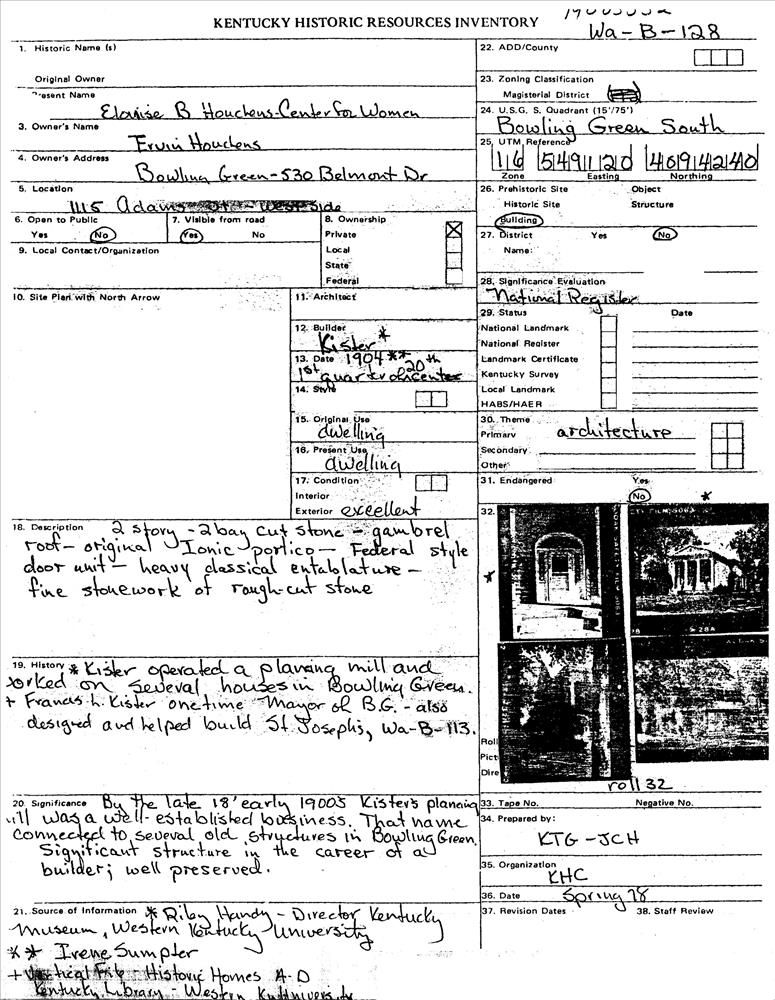 KENTUCKY HISTORIC RESOURCES INVENTORY
Wa-B-128
1. Historic Name (s)
Original Owner
Present Name
Eloise B Houchens-Center for Women
3. Owner's Name
Ervin Houchens
4. Owner's Address
Bowling Green-530 Belmont Dr
5. Location
1115 Adams St - West side
6. Open to Public
Yes No
7. Visible from road
Yes No
8. Ownership
Private
Local
State
Federal
9. Local Contact/Organization
10. Site Plan with North Arrow
11. Architect
12. Builder
Kister *
13. Date 1904 **
1st quarter of 20th century
14. Style
15. Original Use
dwelling
16. Present Use
dwelling
17. Condition
Interior
Exterior excellent
18. Description 2 story - 2 bay cut stone - gambrel
roof - original Ionic portico - Federal style
door unit - heavy classical entablature -
fine stonework of rough-cut stone
19. History * Kister operated a planing mill and
worked on several houses in Bowling Green.
+ Francis L. Kister onetime Mayor of B.G. - also
designed and helped build St. Joseph's, Wa-B-113.
20. Significance By the late 18' early 1900s Kister's planing
mill was a well-established business. That name
connected to several old structures in Bowling Green.
Significant structure in the career of a
builder; well preserved.
21. Source of Information * Riley Handy - Director Kentucky
Museum, Western Kentucky University
** Irene Sumpter
+ Vertical File - Historic Homes A-D
Kentucky Library - Western Ky. University
22. ADD/County
23. Zoning Classification
Magisterial District
24. U.S.G. S. Quadrant (15'/75')
Bowling Green South
25. UTM Reference
16 549120 4094240
Zone Easting Northing
26. Prehistoric Site Object
Historic Site Structure
Building
27. District Yes No
Name:
28. Significance Evaluation
National Register
29. Status Date
National Landmark
National Register
Landmark Certificate
Kentucky Survey
Local Landmark
HABS/HAER
30. Theme
Primary architecture
Secondary
Other
31. Endangered Yes
No *
32.
*
Roll
Pict
Dire
roll 32
33. Tape No. Negative No.
34. Prepared by:
KTG-JCH
35. Organization
KHC
36. Date Spring 78
37. Revision Dates 38. Staff Review